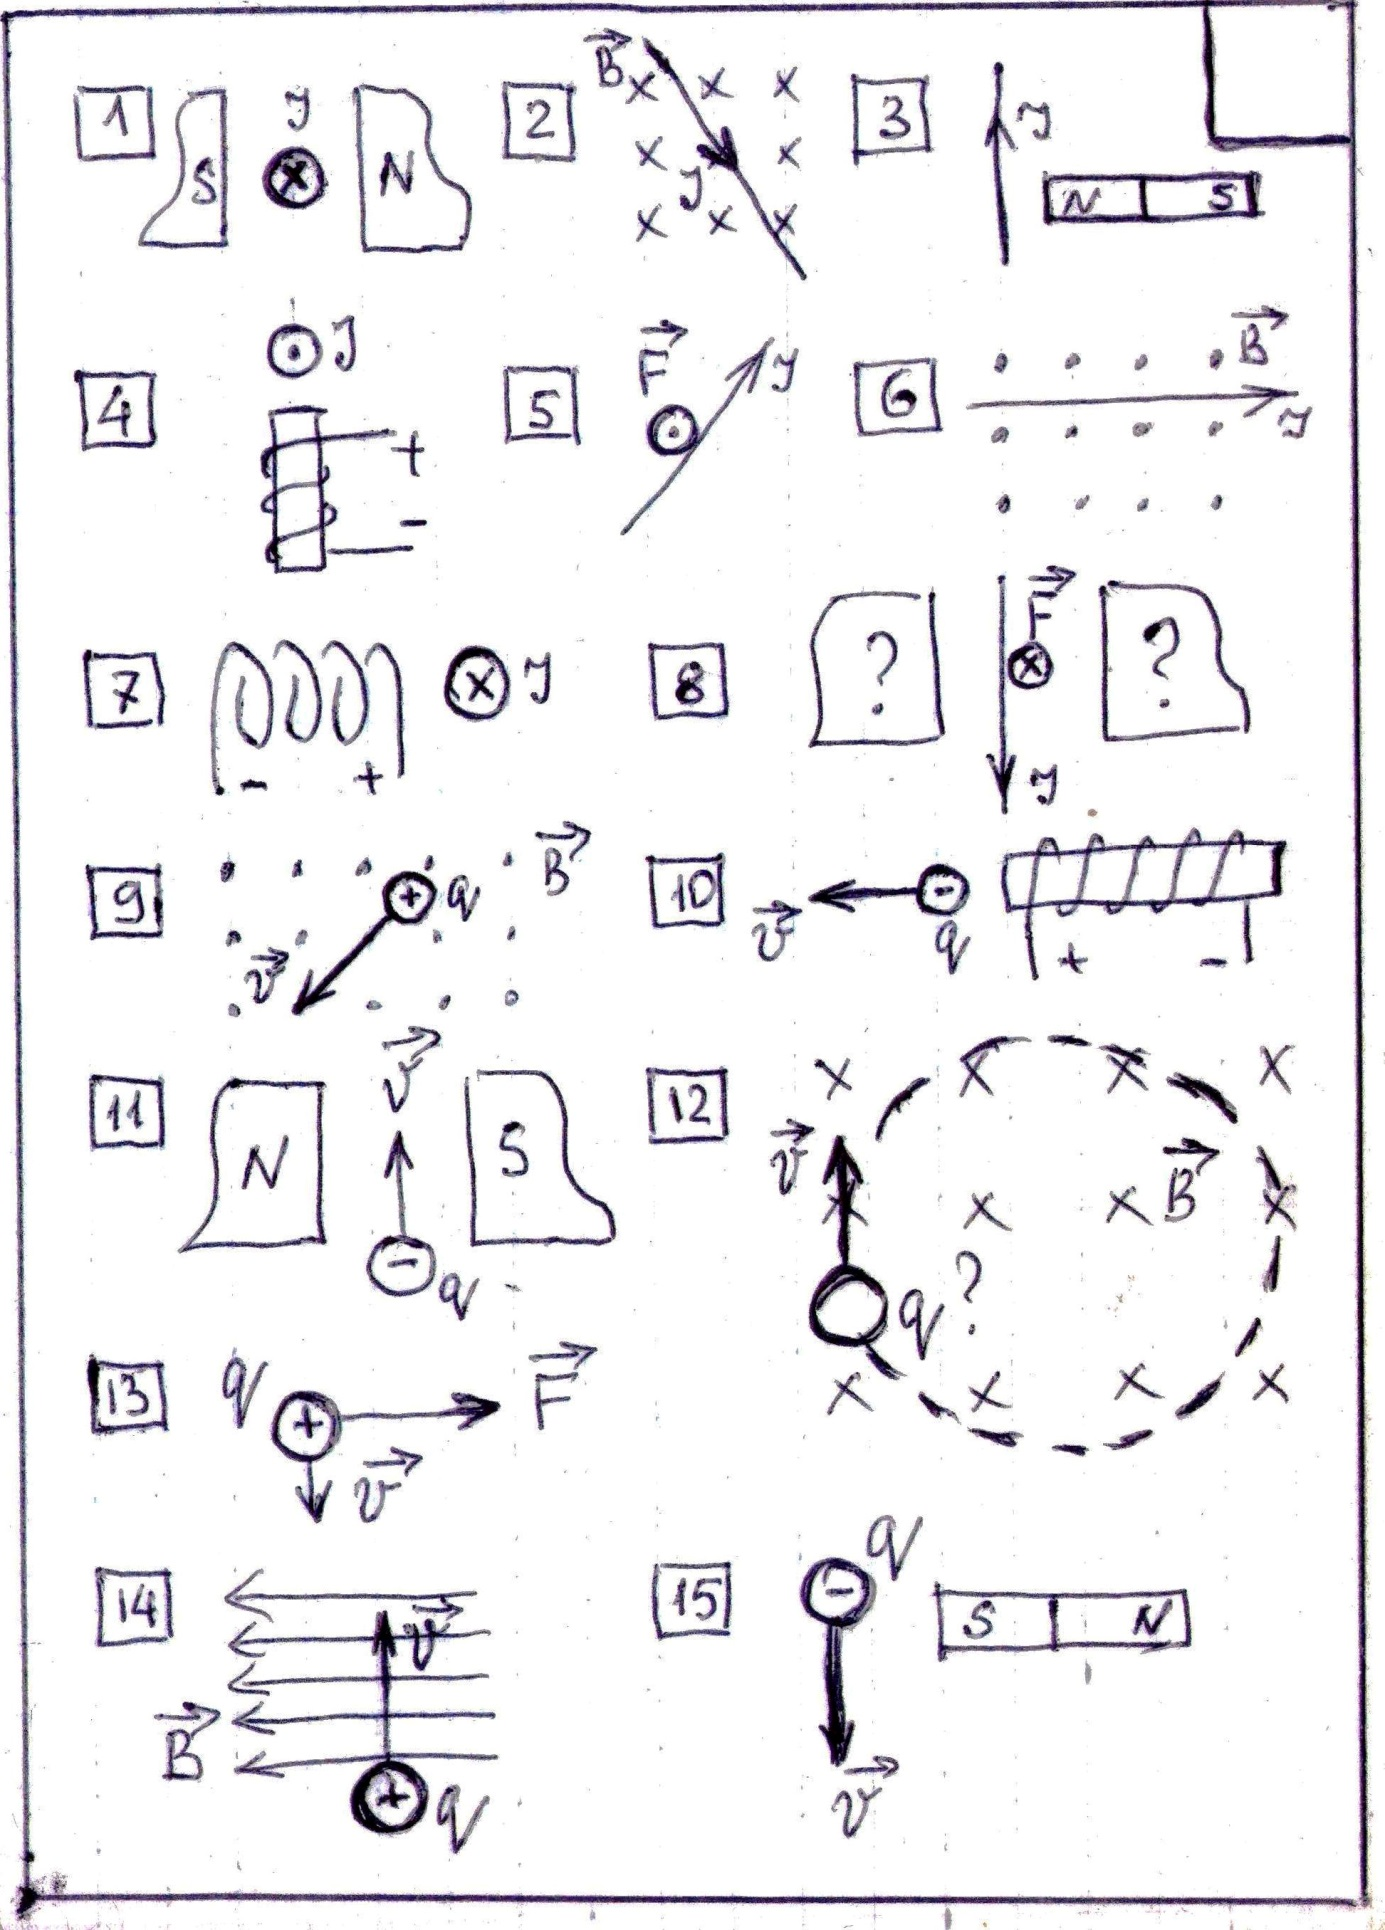 1 S I N
2 B I
3 I N S
4 I + -
5 F I
6 B I
7 - + I
8 ? F ? I
9 q B v
10 v q + -
11 N v S q
12 v B q ?
13 q F v
14 v B q
15 q S N v